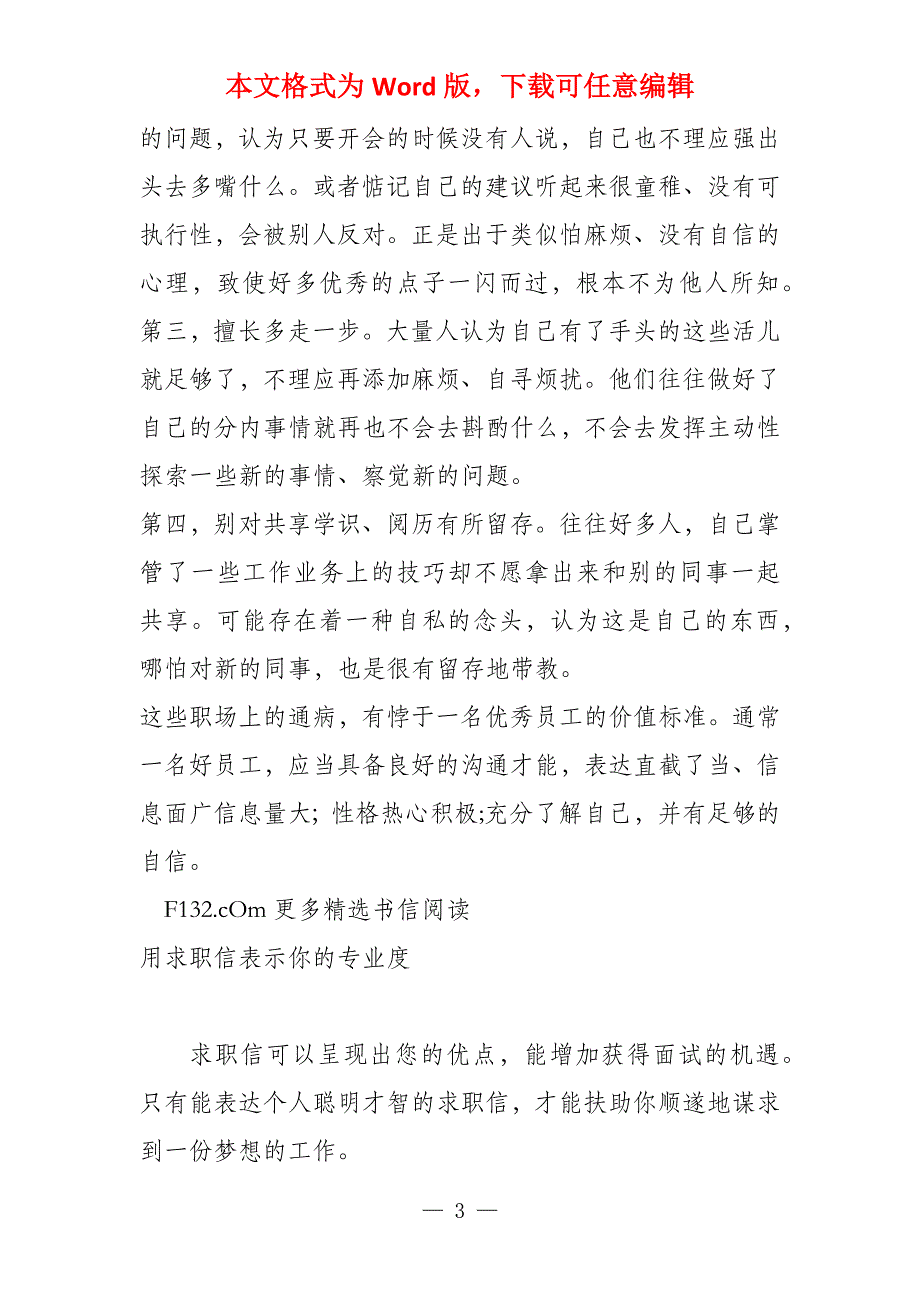 本文格式为 Word 版，下载可任意编辑
的问题，认为只要开会的时候没有人说，自己也不理应强出
头去多嘴什么。或者惦记自己的建议听起来很童稚、没有可
执行性，会被别人反对。正是出于类似怕麻烦、没有自信的
心理，致使好多优秀的点子一闪而过，根本不为他人所知。
第三，擅长多走一步。大量人认为自己有了手头的这些活儿
就足够了，不理应再添加麻烦、自寻烦扰。他们往往做好了
自己的分内事情就再也不会去斟酌什么，不会去发挥主动性
探索一些新的事情、察觉新的问题。
第四，别对共享学识、阅历有所留存。往往好多人，自己掌
管了一些工作业务上的技巧却不愿拿出来和别的同事一起
共享。可能存在着一种自私的念头，认为这是自己的东西，
哪怕对新的同事，也是很有留存地带教。
这些职场上的通病，有悖于一名优秀员工的价值标准。通常
一名好员工，应当具备良好的沟通才能，表达直截了当、信
息面广信息量大; 性格热心积极;充分了解自己，并有足够的
自信。
F132.cOm 更多精选书信阅读
用求职信表示你的专业度
求职信可以呈现出您的优点，能增加获得面试的机遇。
只有能表达个人聪明才智的求职信，才能扶助你顺遂地谋求
到一份梦想的工作。
— 3 —